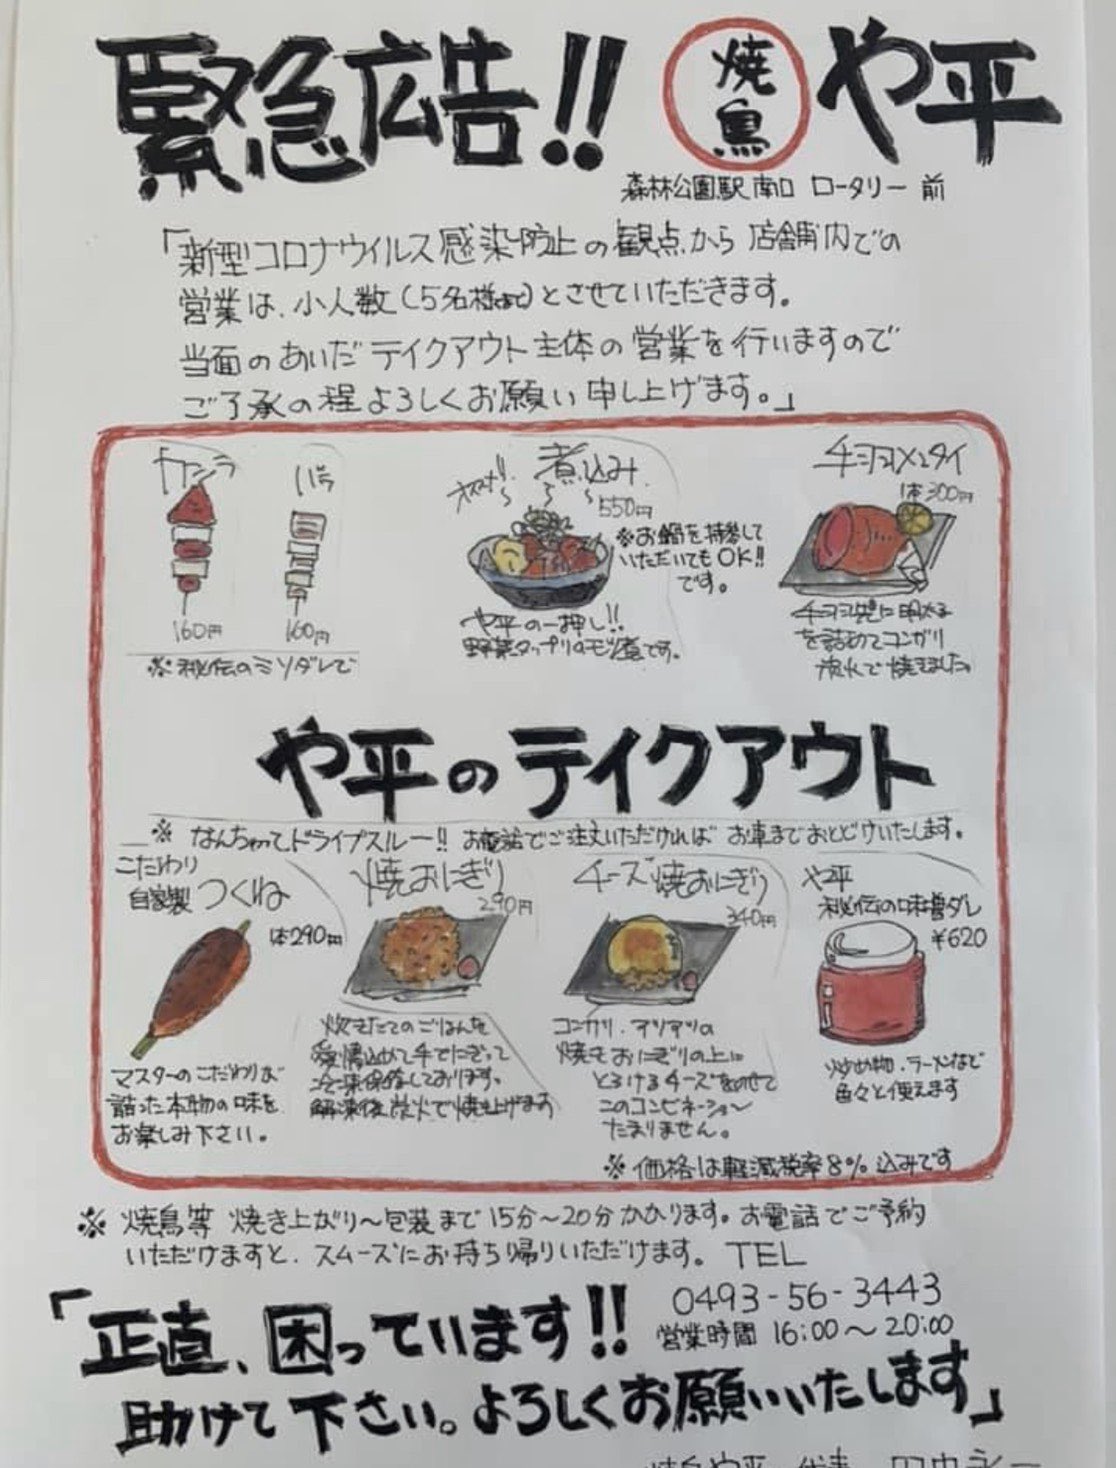 緊急広告!! 焼鳥 や平
森林公園駅南口 ロータリー前
「新型コロナウイルス感染防止の観点から店舗内での
営業は、小人数(5名様まで)とさせていただきます。
当面のあいだテイクアウト主体の営業を行いますので
ご了承の程よろしくお願い申し上げます。」
カシラ
160円
バラ
160円
※秘伝のミソダレで
オススメ!!
煮込み
550円
※お鍋を持参して
いただいてもOK!!
です。
や平の一押し!!
野菜タップリのモツ煮です。
チョリメンタイ
1本300円
を詰めてコンガリ
炭火で焼きました。
や平のテイクアウト
※なんちゃってドライブスルー!! お電話でご注文いただければ お車までおとどけいたします。
こだわり
自家製 つくね
1本290円
マスターのこだわりが
詰った本物の味を
お楽しみ下さい。
焼おにぎり
290円
炊きたてのごはんを
愛情込めて手でにぎって
冷凍保存しております。
解凍後炭火で焼上げます
チーズ焼おにぎり
340円
コンガリ、アツアツの
焼きおにぎりの上に
とろけるチーズをのせて
このコンビネーション
たまりません。
や平
秘伝の味噌ダレ
¥620
炒め物、ラーメンなど
色々と使えます
※価格は軽減税率8%込みです
※焼鳥等 焼き上がり〜包装まで15分〜20分かかります。お電話でご予約
いただけますと、スムーズにお持ち帰りいただけます。 TEL
0493-56-3443
営業時間 16:00〜20:00
「正直、困っています!!
助けて下さい。よろしくお願いいたします」